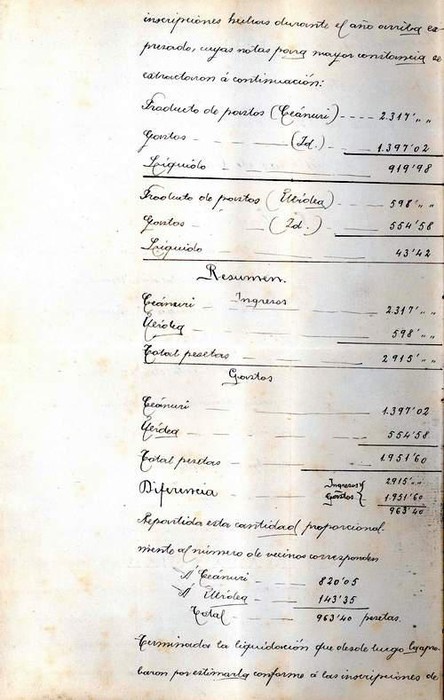 inscripciones hechas durante el año arriba ex-
presado, cuyas notas para mayor constancia se
extractaron á continuación:
Producto de pastos (Ceánuri) ---- 2.317'„ „
Gastos - (Id.) --- 1.397'02
Líquido --- 919'98
Producto de pastos (Ubidea) --- 598'„ „
Gastos - (Id.) --- 554'58
Líquido --- 43'42
Resumen.
Ingresos
Ceánuri --- 2.317'„ „
Ubidea --- 598'„ „
Total pesetas --- 2915'„ „
Gastos
Ceánuri --- 1.397'02
Ubidea --- 554'58
Total pesetas --- 1.951'60
Diferencia Ingresos 2915'„ „
Gastos 1.951'60
963'40
Repartida esta cantidad proporcional-
mente al número de vecinos corresponden
A' Ceánuri --- 820'05
A' Ubidea --- 143'35
Total --- 963'40 pesetas.
Terminada la liquidación que desde luego la apro-
baron por estimarla conforme á las inscripciones de